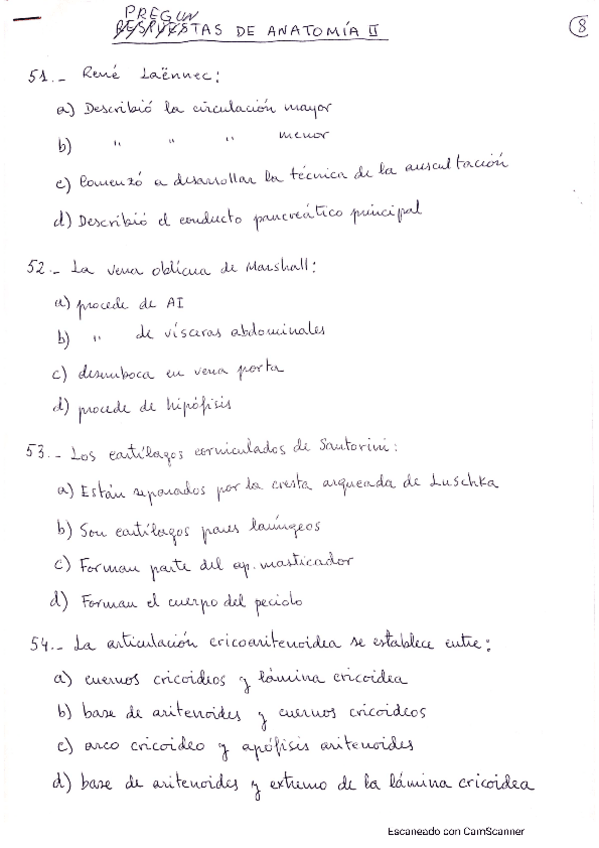 PREGUN
RESPUESTAS DE ANATOMÍA II
8
51.- René Laënnec:
a) Describió la circulación mayor
b) " " " menor
c) Comenzó a desarrollar la técnica de la auscultación
d) Describió el conducto pancreático principal
52.- La vena oblicua de Marshall:
a) procede de AI
b) " de vísceras abdominales
c) desemboca en vena porta
d) procede de hipófisis
53.- Los cartílagos corniculados de Santorini:
a) Están separados por la cresta arqueada de Luschka
b) Son cartílagos pares laríngeos
c) Forman parte del ap. masticador
d) Forman el cuerpo del peciolo
54.- La articulación cricoaritenoidea se establece entre:
a) cuernos cricoideos y lámina cricoidea
b) base de aritenoides y cuernos cricoideos
c) arco cricoideo y apófisis aritenoides
d) base de aritenoides y extremo de la lámina cricoidea
Escaneado con CamScanner